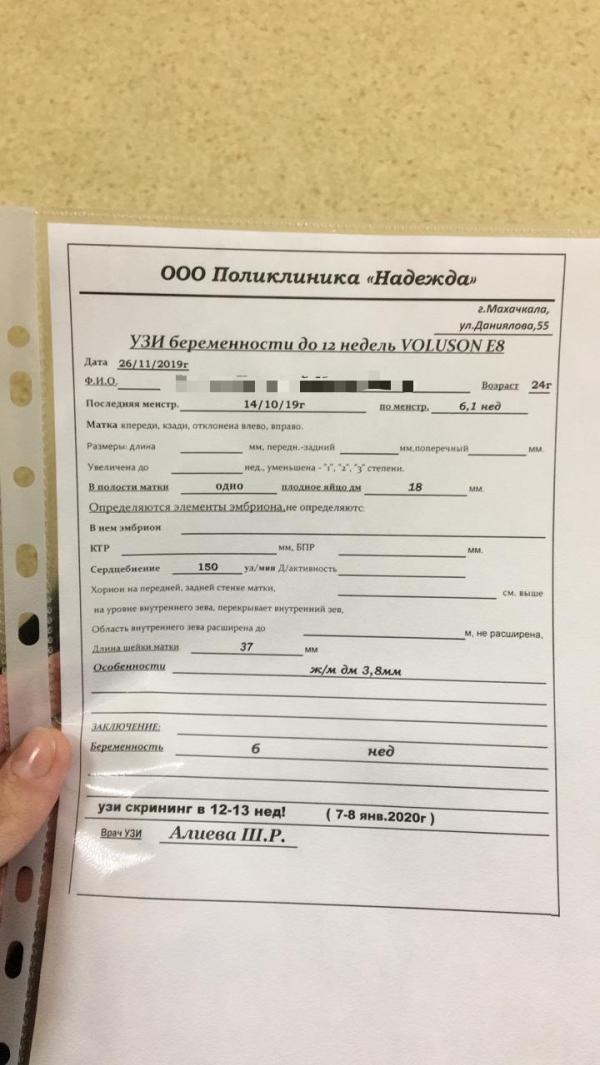 ООО Поликлиника «Надежда»
г.Махачкала,
ул.Даниялова,55
УЗИ беременности до 12 недель VOLUSON E8
Дата 26/11/2019г
Ф.И.О. Возраст 24г
Последняя менстр. 14/10/19г по менстр. 6,1 нед
Матка кпереди, кзади, отклонена влево, вправо.
Размеры: длина мм, передн.-задний мм,поперечный мм.
Увеличена до нед., уменьшена - "1", "2", "3" степени.
В полости матки одно плодное яйцо дм 18 мм.
Определяются элементы эмбриона,не определяютс
В нем эмбрион
КТР мм, БПР мм.
Сердцебиение 150 уд/мин Д/активность
Хорион на передней, задней стенке матки, см. выше
на уровне внутреннего зева, перекрывает внутренний зев,
Область внутреннего зева расширена до м, не расширена,
Длина шейки матки 37 мм
Особенности ж/м дм 3,8мм
ЗАКЛЮЧЕНИЕ:
Беременность 6 нед
узи скрининг в 12-13 нед! ( 7-8 янв.2020г )
Врач УЗИ Алиева Ш.Р.